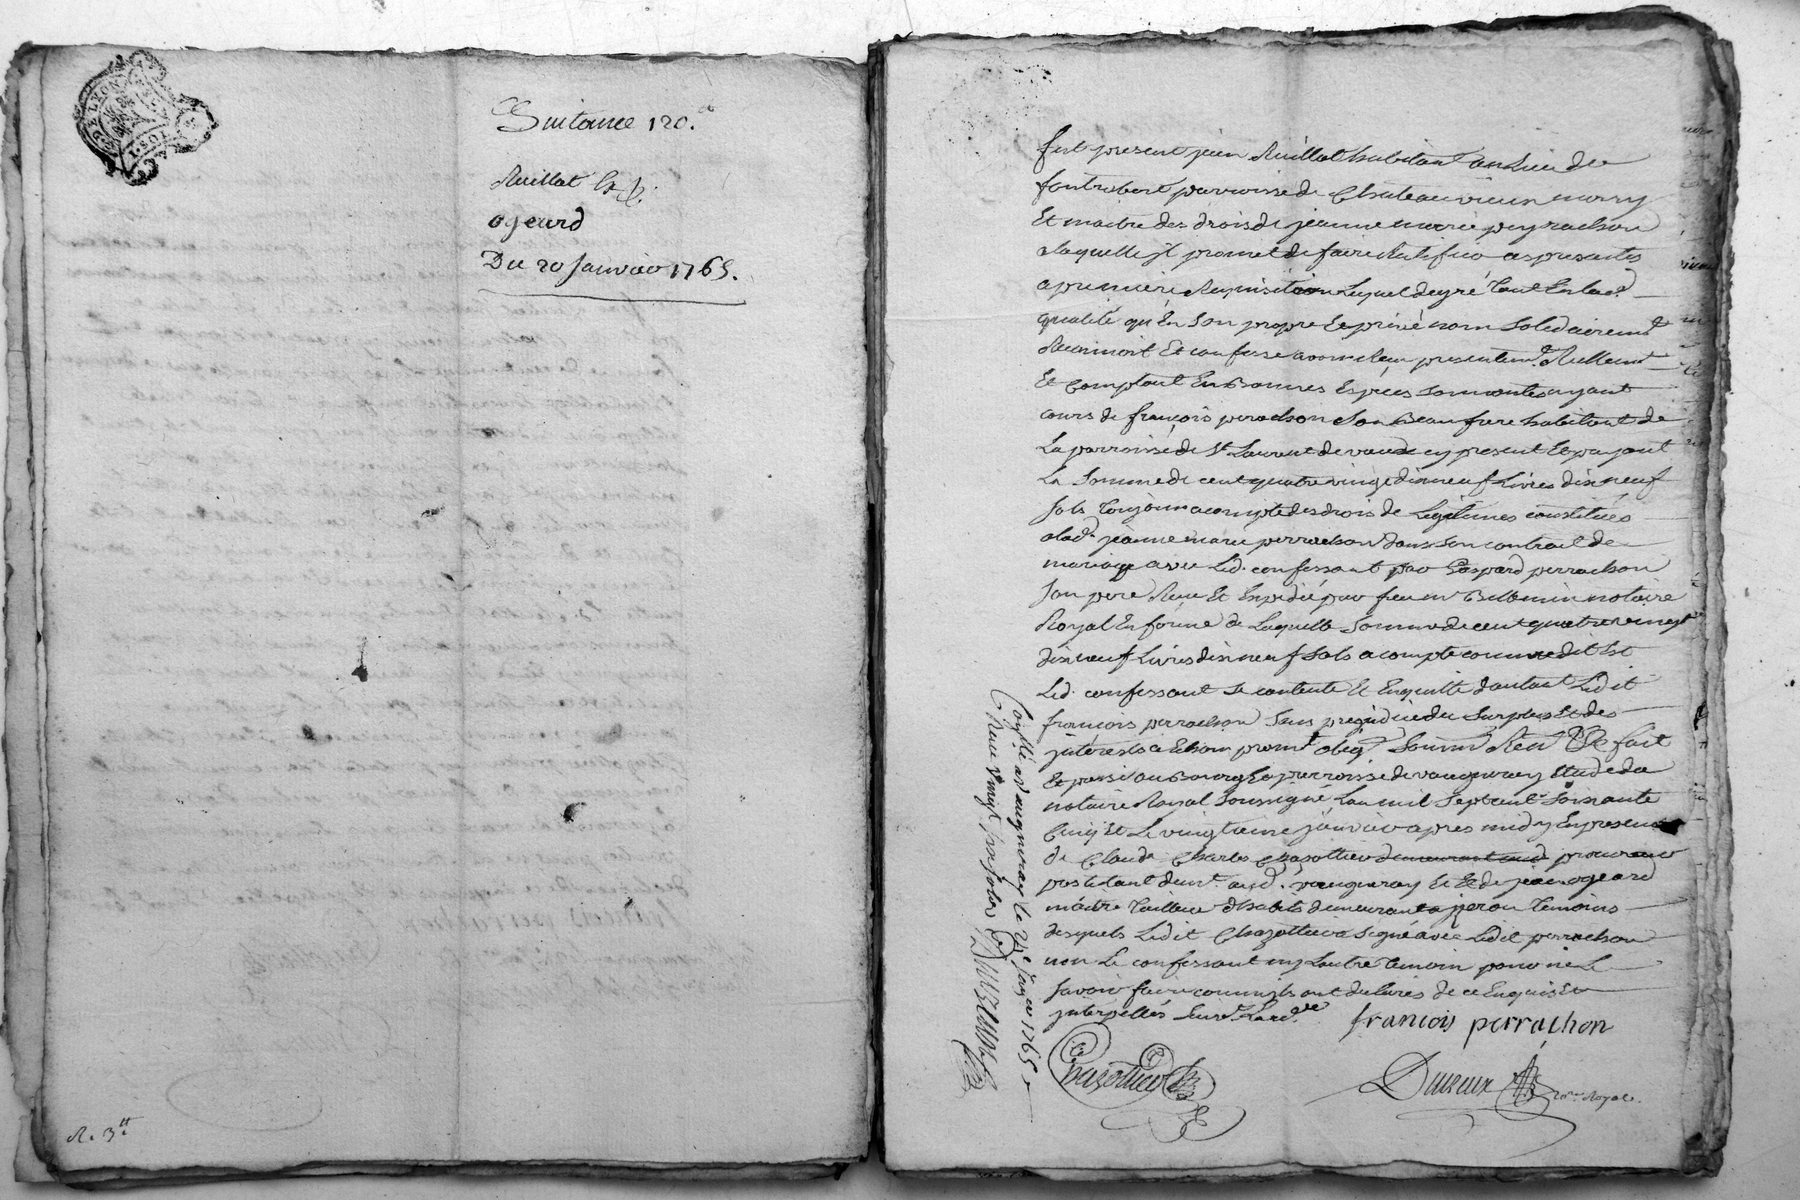 DE LYON
1 SOL
Quitance 120.ᵗᵗ
Ruillat
ogeard
Du 20 Janvier 1765.
R. 3ᵗᵗ
fut present jean Ruillat habitant au Lieu de
fontrobert parroisse de Chateauvieux mary
Et maitre des droits de jeanne marie peyrachon
a laquelle jl promet de faire Ratifier ces presentes
a premiere Requisition Lequel de gré tant En lad.
qualité qu'En Son propre Et privé nom Solidairemt
Reconnoit Et confesse avoir Reçu presentemt. Reellemt
Et Comptant En Bonnes Especes Sonnantes ayant
cours de françois perrachon Son Beau frere habitant de
La parroisse de St. Laurent de vaux cy present Et payant
La Somme de cent quatre vingt dix neuf Livres dix neuf
sols Toujours a compte des droits de Legitimes constitués
a lad. jeanne marie perrachon dans Son contrait de
mariage avec Led. confessant par Gaspard perrachon
Son pere Reçu Et Expedié par feu me Bellemin notaire
Royal En forme de Laquelle Somme de cent quatre vingt
dix neuf Livres dix neuf Sols a compte comme dit Est
Led. confessant Se contente Et En quitte d'autant Ledit
francois perrachon Sans prejudice du Surplus Et des
jnterets a Echoir promt. oblig. Soumn. Ren. Fait
Et passé au Bourg Et parroisse de vaugneray Etude du
notaire Royal Soussigné L'an mil Sept cent Soixante
Cinq Et Le vingtieme janvier apres midy En presence
de Claude Charles Chazottier procureur
postulant demt. aud. vaugneray Et de jean ogeard
maitre Tailleur d'habits demeurant a Temoins
desquels Ledit Chazottier a Signé avec Ledit perrachon
non Le confessant ny L'autre Temoin pour ne Le
Savoir faire comme jls ont declarés de ce Enquis Et
jnterpellés
francois perrachon
Chazottier
not. Royal.
Controllé a vaugneray le janvier 1765
Reçu vingt six sols